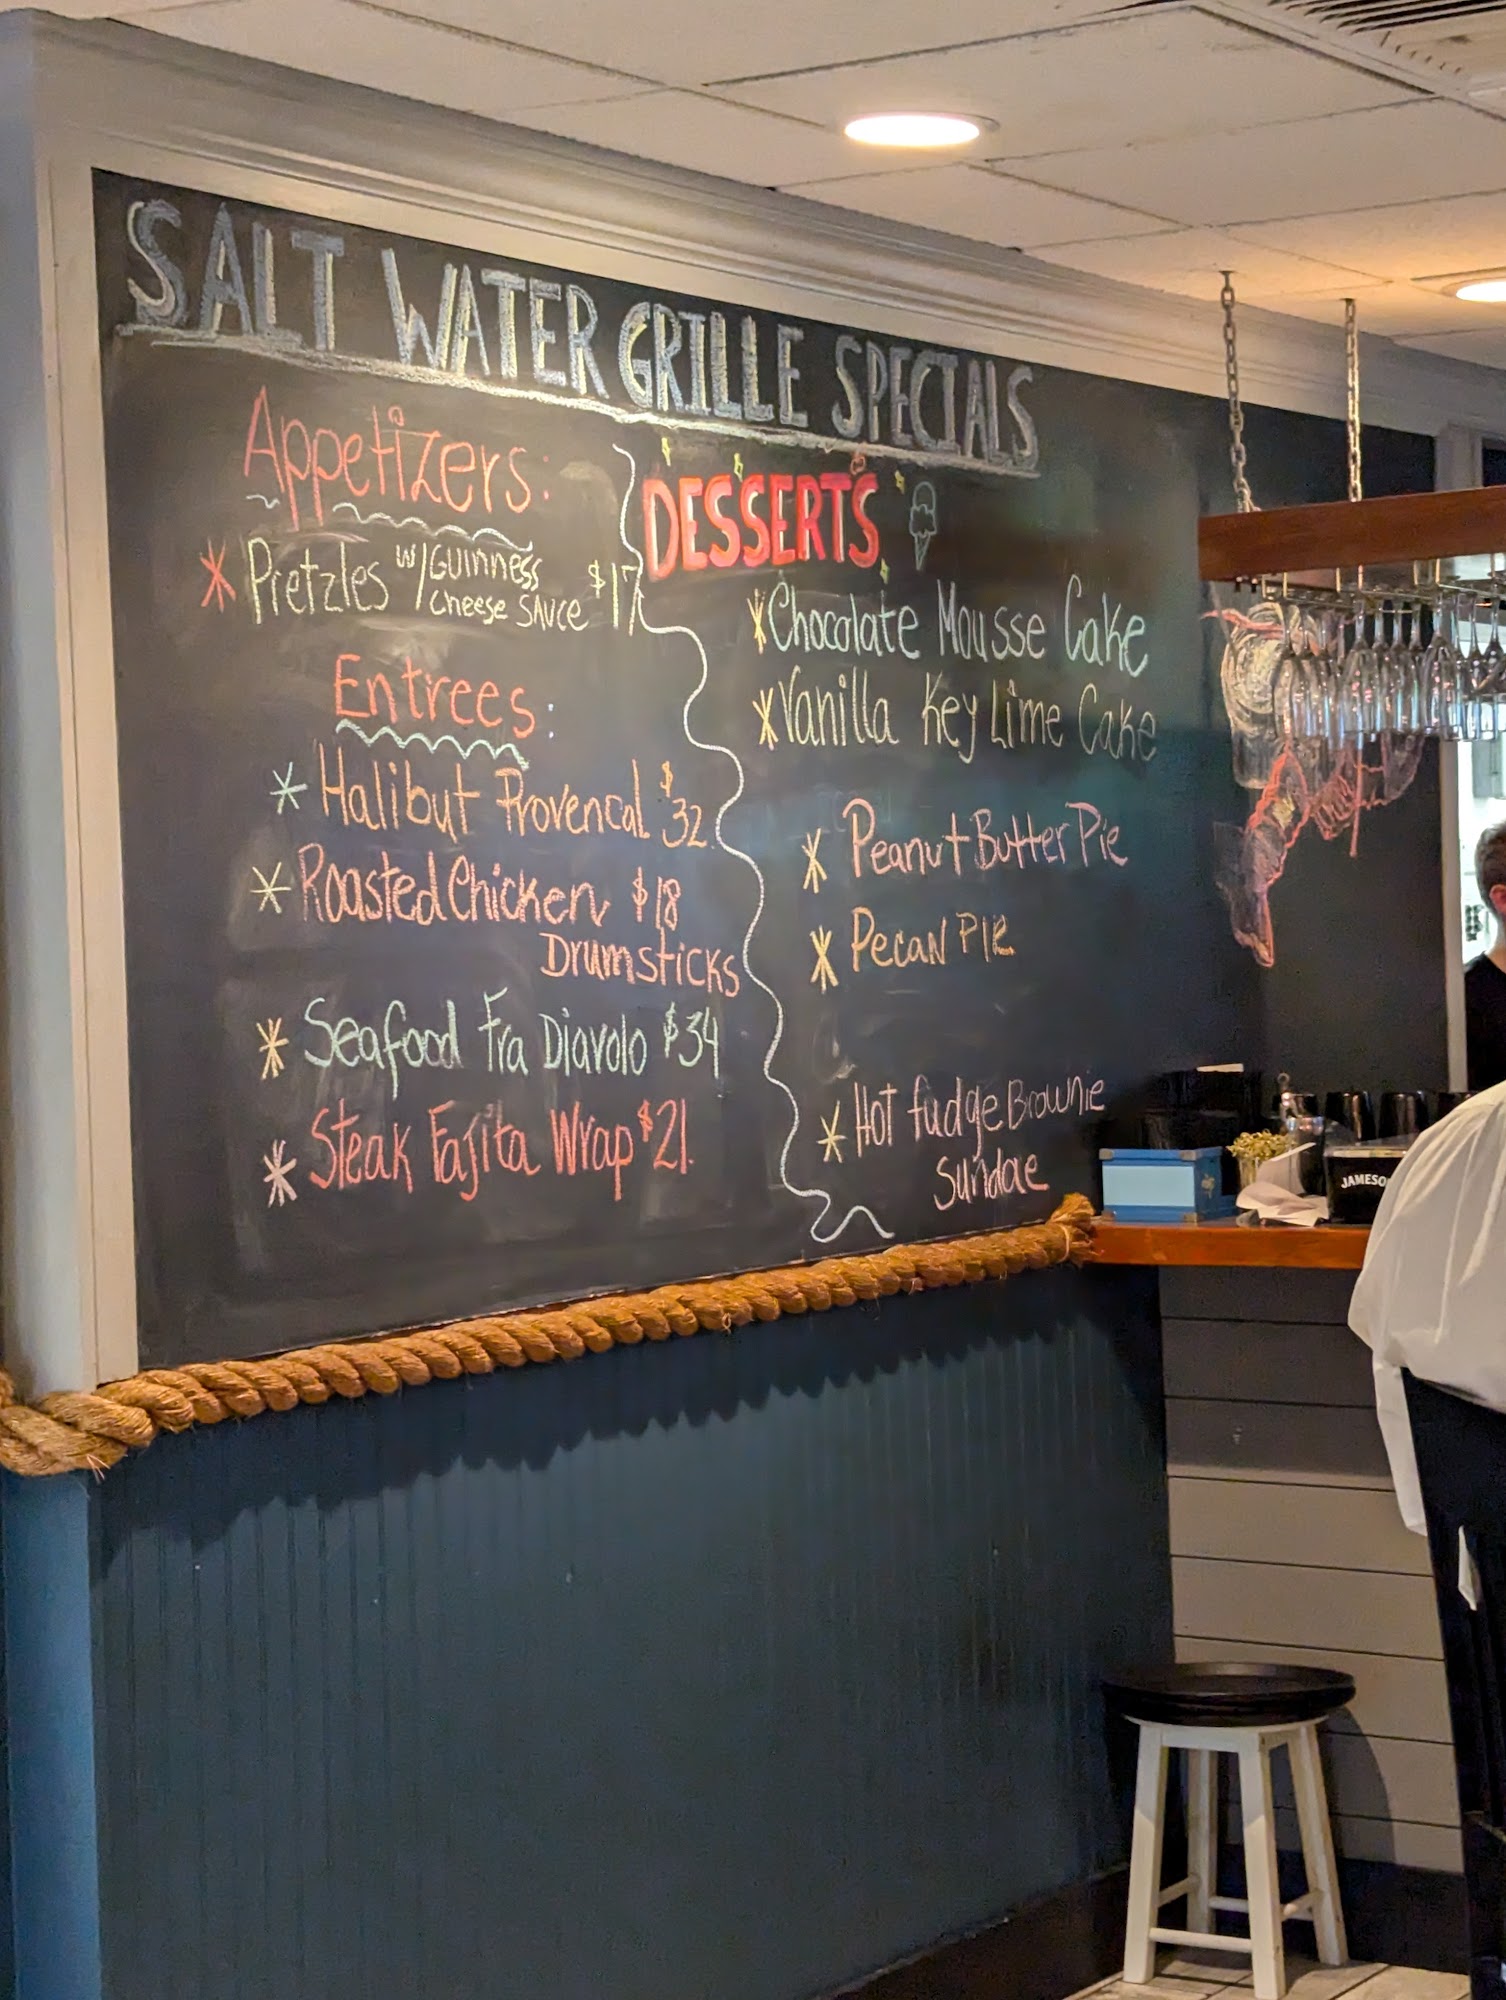 SALT WATER GRILLE SPECIALS
Appetizers:
Pretzles w/ Guinness
Cheese Sauce $17
Entrees:
Halibut Provencal $32
Roasted Chicken $18
Drumsticks
Seafood Fra Diavolo $34
Steak Fajita Wrap $21.
DESSERTS
Chocolate Mousse Cake
Vanilla Key Lime Cake
Peanut Butter Pie
Pecan PIE
Hot fudge Brownie
Sundae